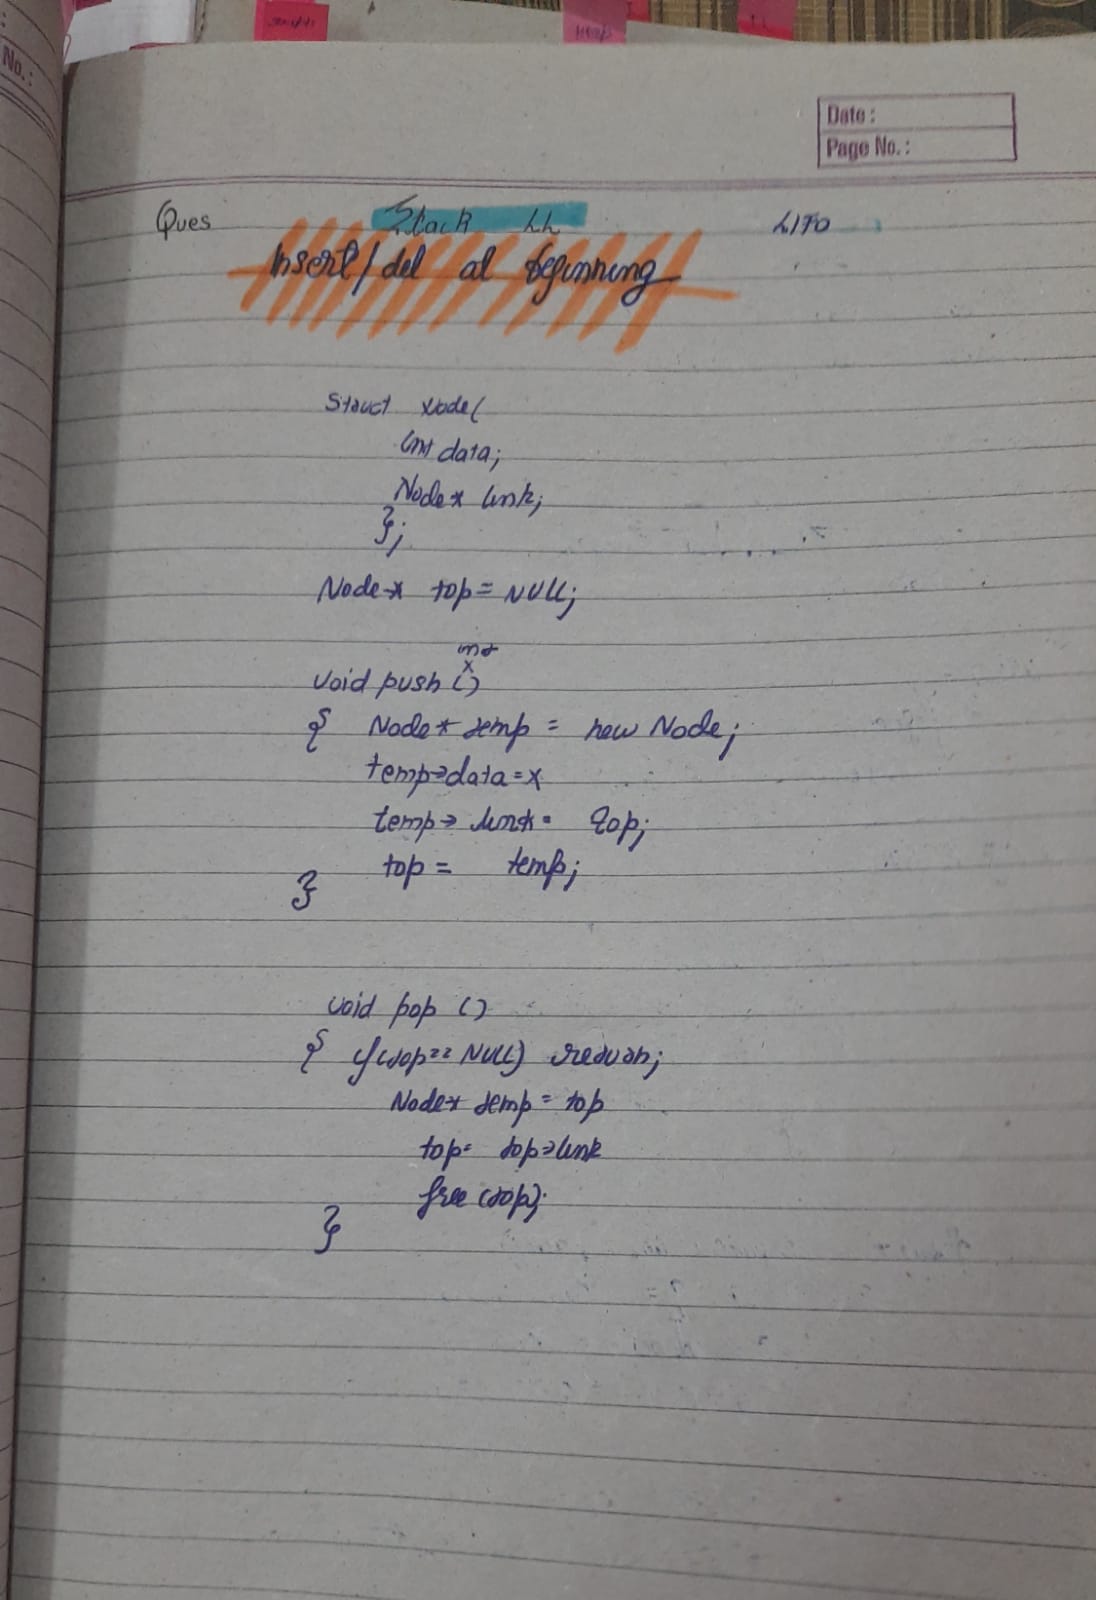 No.:
Date:
Page No.:
Ques Stack LL LIFO
Insert/del at beginning
Struct Node{
int data;
Node* link;
};
Node* top = NULL;
int
x
void push ()
{ Node* temp = new Node;
temp→data = x
temp→ link = top;
top = temp;
}
void pop ()
{ if(top == NULL) return;
Node* temp = top
top = top→link
free (top);
}